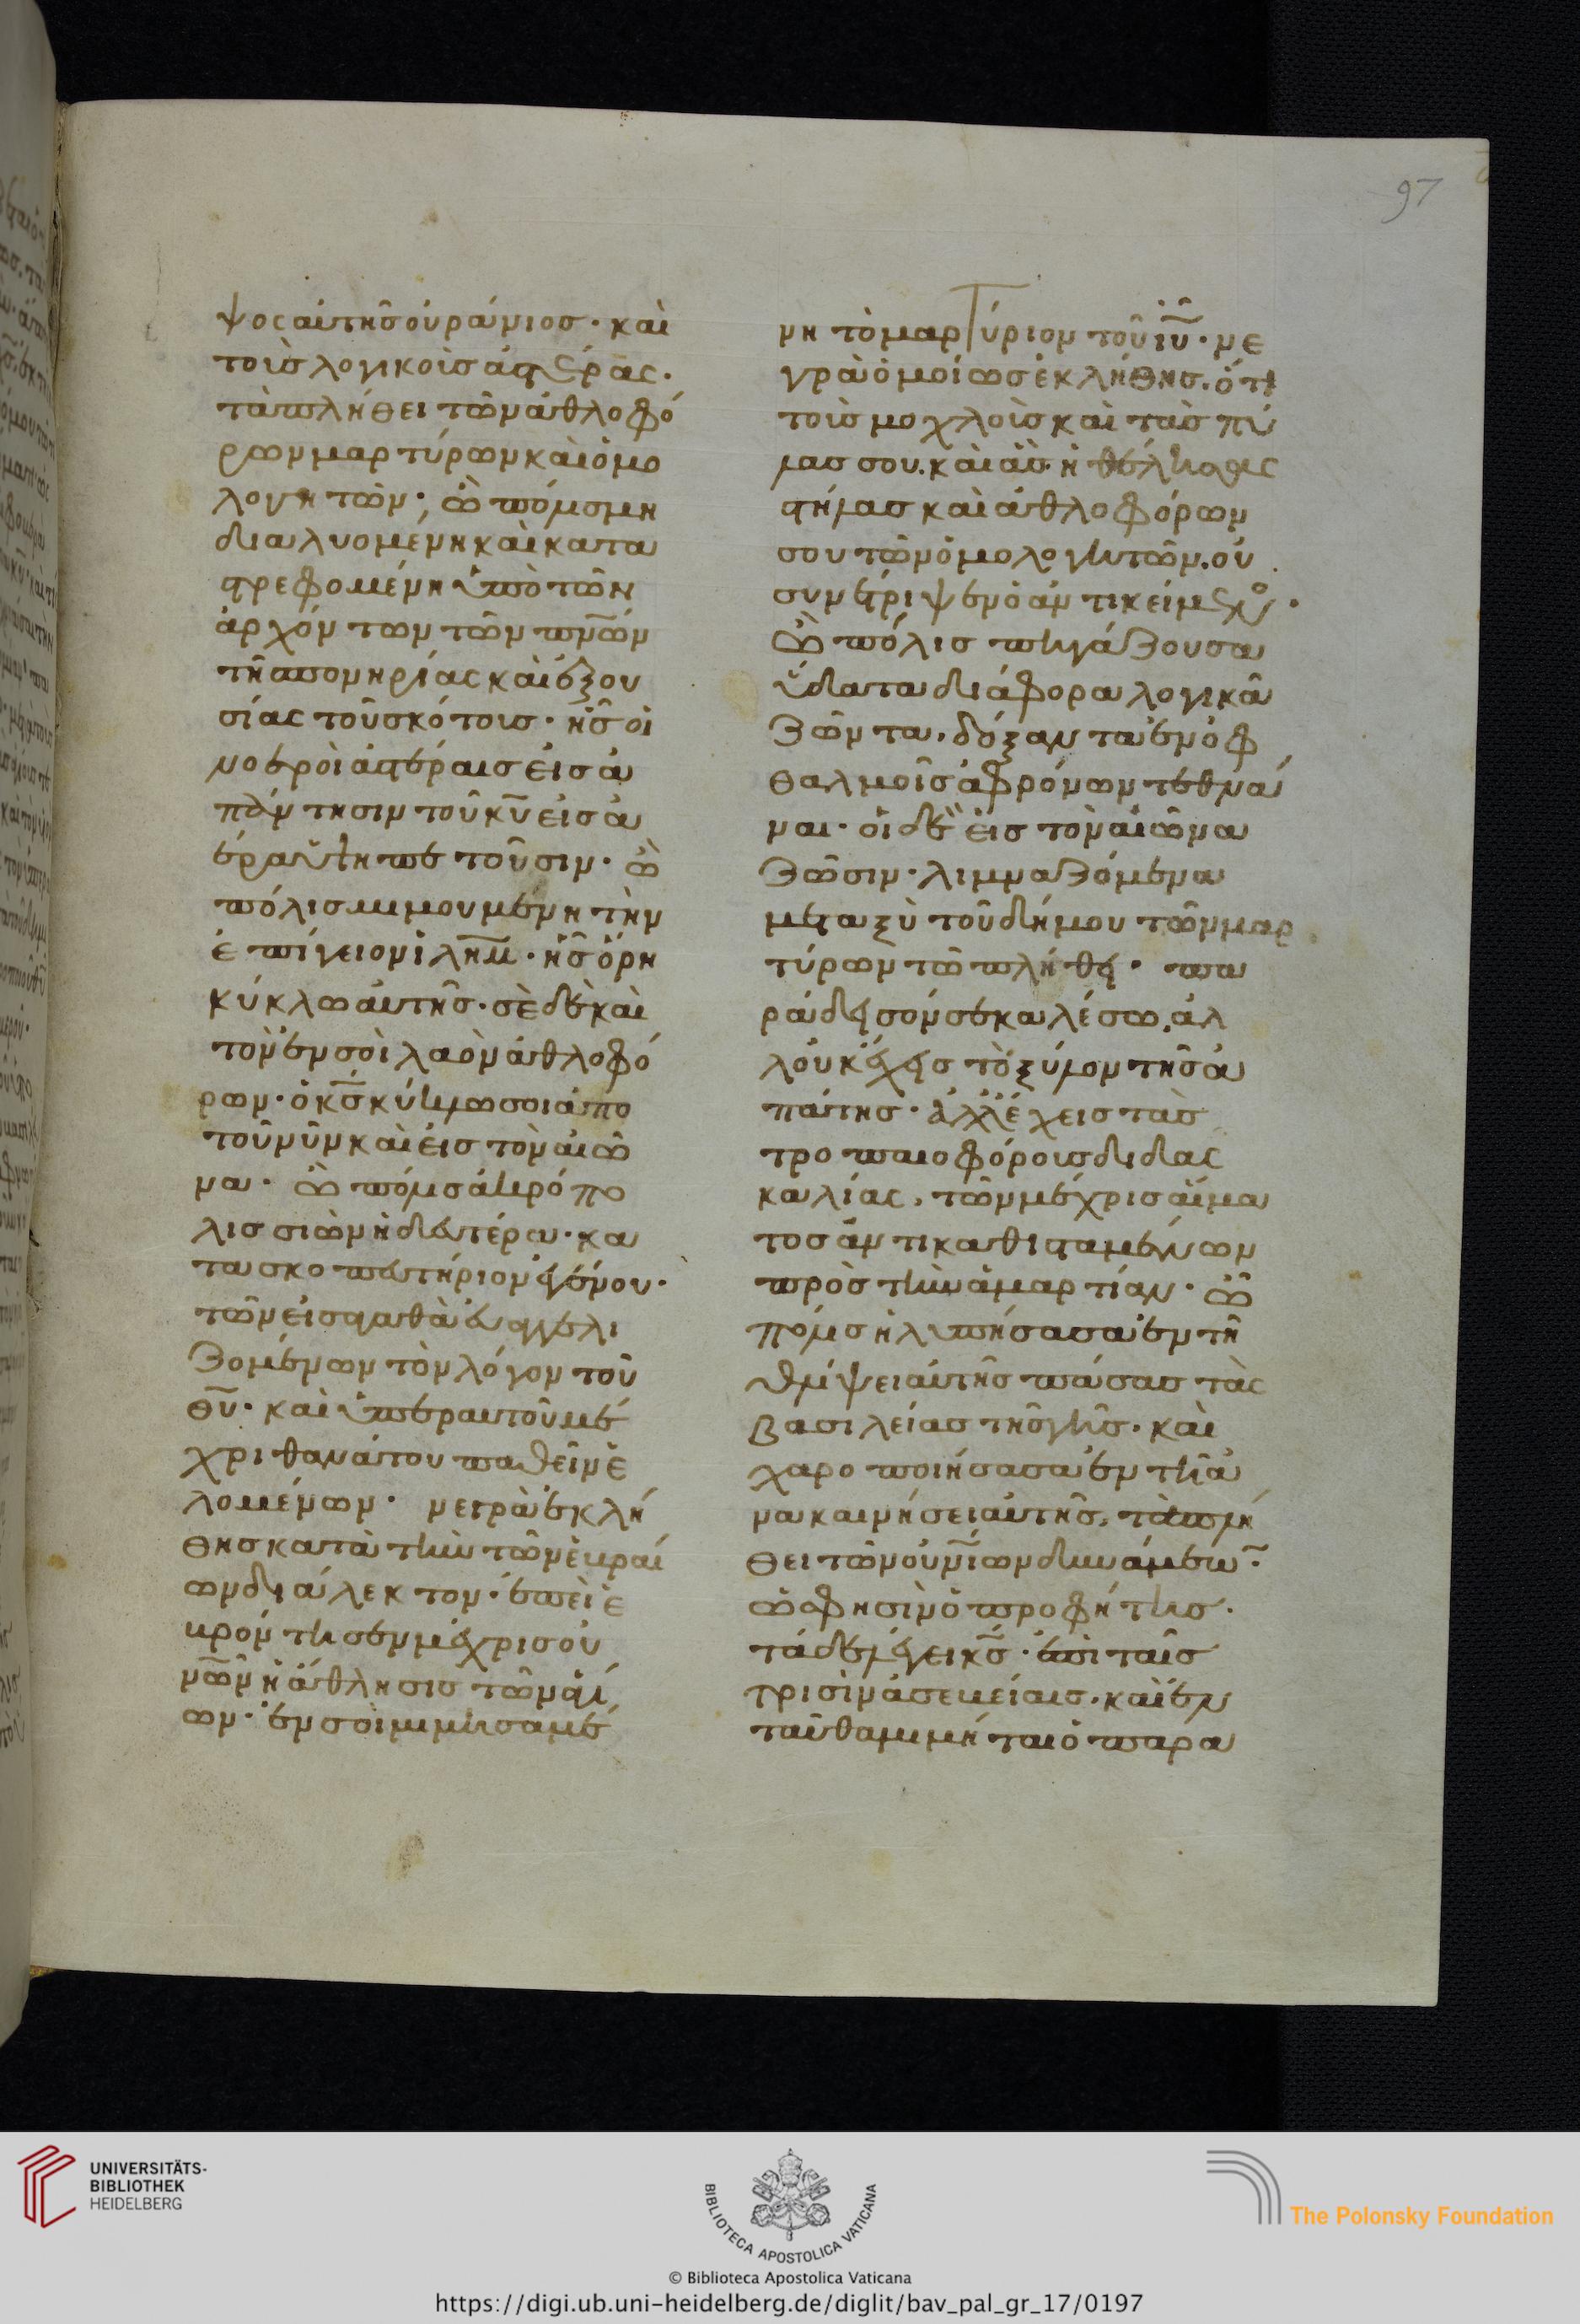 97
ψος αὐτῆς οὐράνιος · καὶ
τοῖς λογικοῖς ἀστέρας ·
τὰ πλήθει τῶν ἀθλοφό
ρων μαρτύρων καὶ ὁμο
λογητῶν · ὦ πόλις μὴ
διαλυομένη καὶ κατα
στρεφομένη ὑπὸ τῶν
ἀρχόντων τῶν πν̅ων
τῆς πονηρίας καὶ ἐξου
σίας τοῦ σκότους · ἧς οἱ
νοεροὶ ἀστέρες εἰς ἀ
πάντησιν τοῦ κ̅υ εἰς ἀ
έρα ἵπτανται · ὦ
πόλις μιμουμένη τὴν
ἐπίγειον ἰλη̅μ · ἧς ὄρη
κύκλω αὐτῆς · σὲ δὲ καὶ
τὸν ἐν σοὶ λαὸν ἀθλοφό
ρων · ὁ κ̅ς κύκλωσοι ἀπο
τοῦ νῦν καὶ εἰς τὸν αἰῶ
να · ὦ πόλις ἀκρόπο
λις σιὼν ἡ δευτέρα · κα
τασκοπευτήριον γένου ·
τῶν εἰς σταθ εὐαγγελι
ζομένων τὸν λόγον τοῦ
θ̅υ · καὶ ὑπὲρ αὐτοῦ μέ
χρι θανάτου παθεῖν ἑ
λομένων · νεγρὰ ἐκλή
θης κατὰ τὴν τῶν ἑβραί
ων διάλεκτον · ἐπεὶ ἐ
κρότησεν μέχρις οὐ
ν̅ων ἡ ἄθλησις τῶν ἁγί
ων · ἐν σοὶ μιμησαμέ
νη τὸ μαρτύριον τοῦ ι̅υ · νε
γρὰ ὁμοίως ἐκλήθης · ὅτι
τοὺς μοχλοὺς καὶ τὰς πύ
λας σου · καὶ ἀθλη
τήρας καὶ ἀθλοφόρων
σου τῶν ὁμολογητῶν · οὐ
συνέτριψεν ὁ ἀντικείμενος ·
ὦ πόλις πηγάζουσα
ὕδατα διάφορα λογικὰ
ζῶντα · δόξαντα ἐν ὀφ
θαλμοῖς ἀφρόνων τεθνά
ναι · οἱ δὲ εἰς τὸν αἰῶνα
ζῶσιν · λιμναζόμενα
μεταξὺ τοῦ δήμου τῶν μαρ
τύρων τῶ πλήθει · πα
ράδεισόν σε καλέσω · ἀλ
λ οὐκ ἔχεις τὸ ξύλον τῆς ἀ
πάτης · ἀλλ ἔχεις τὰς
τροπαιοφόρους διδας
καλίας · τῶν μέχρις αἵμα
τος ἀντικαθισταμένων
πρὸς τὴν ἁμαρτίαν · ὦ
πόλις ἡ λυπήσασα ἐν τῆ
θλίψει αὐτῆς πάσας τὰς
βασιλείας τῆς γῆς · καὶ
χαροποιήσασα ἐν τῆ ἀ
νακαινήσει αὐτῆς · τὰ πλή
θει τῶν οὐν̅ιων δυνάμεω̅ ·
ὥς φησὶν ὁ προφήτης ·
τάδε λέγει κ̅ς · ἐπὶ ταῖς
τρισὶν ἀσεβείαις · καὶ ἐν
ταῦθα μέμνηται ὁ παρα
UNIVERSITÄTS-
BIBLIOTHEK
HEIDELBERG
BIBLIOTECA APOSTOLICA VATICANA
The Polonsky Foundation
© Biblioteca Apostolica Vaticana
https://digi.ub.uni-heidelberg.de/diglit/bav_pal_gr_17/0197